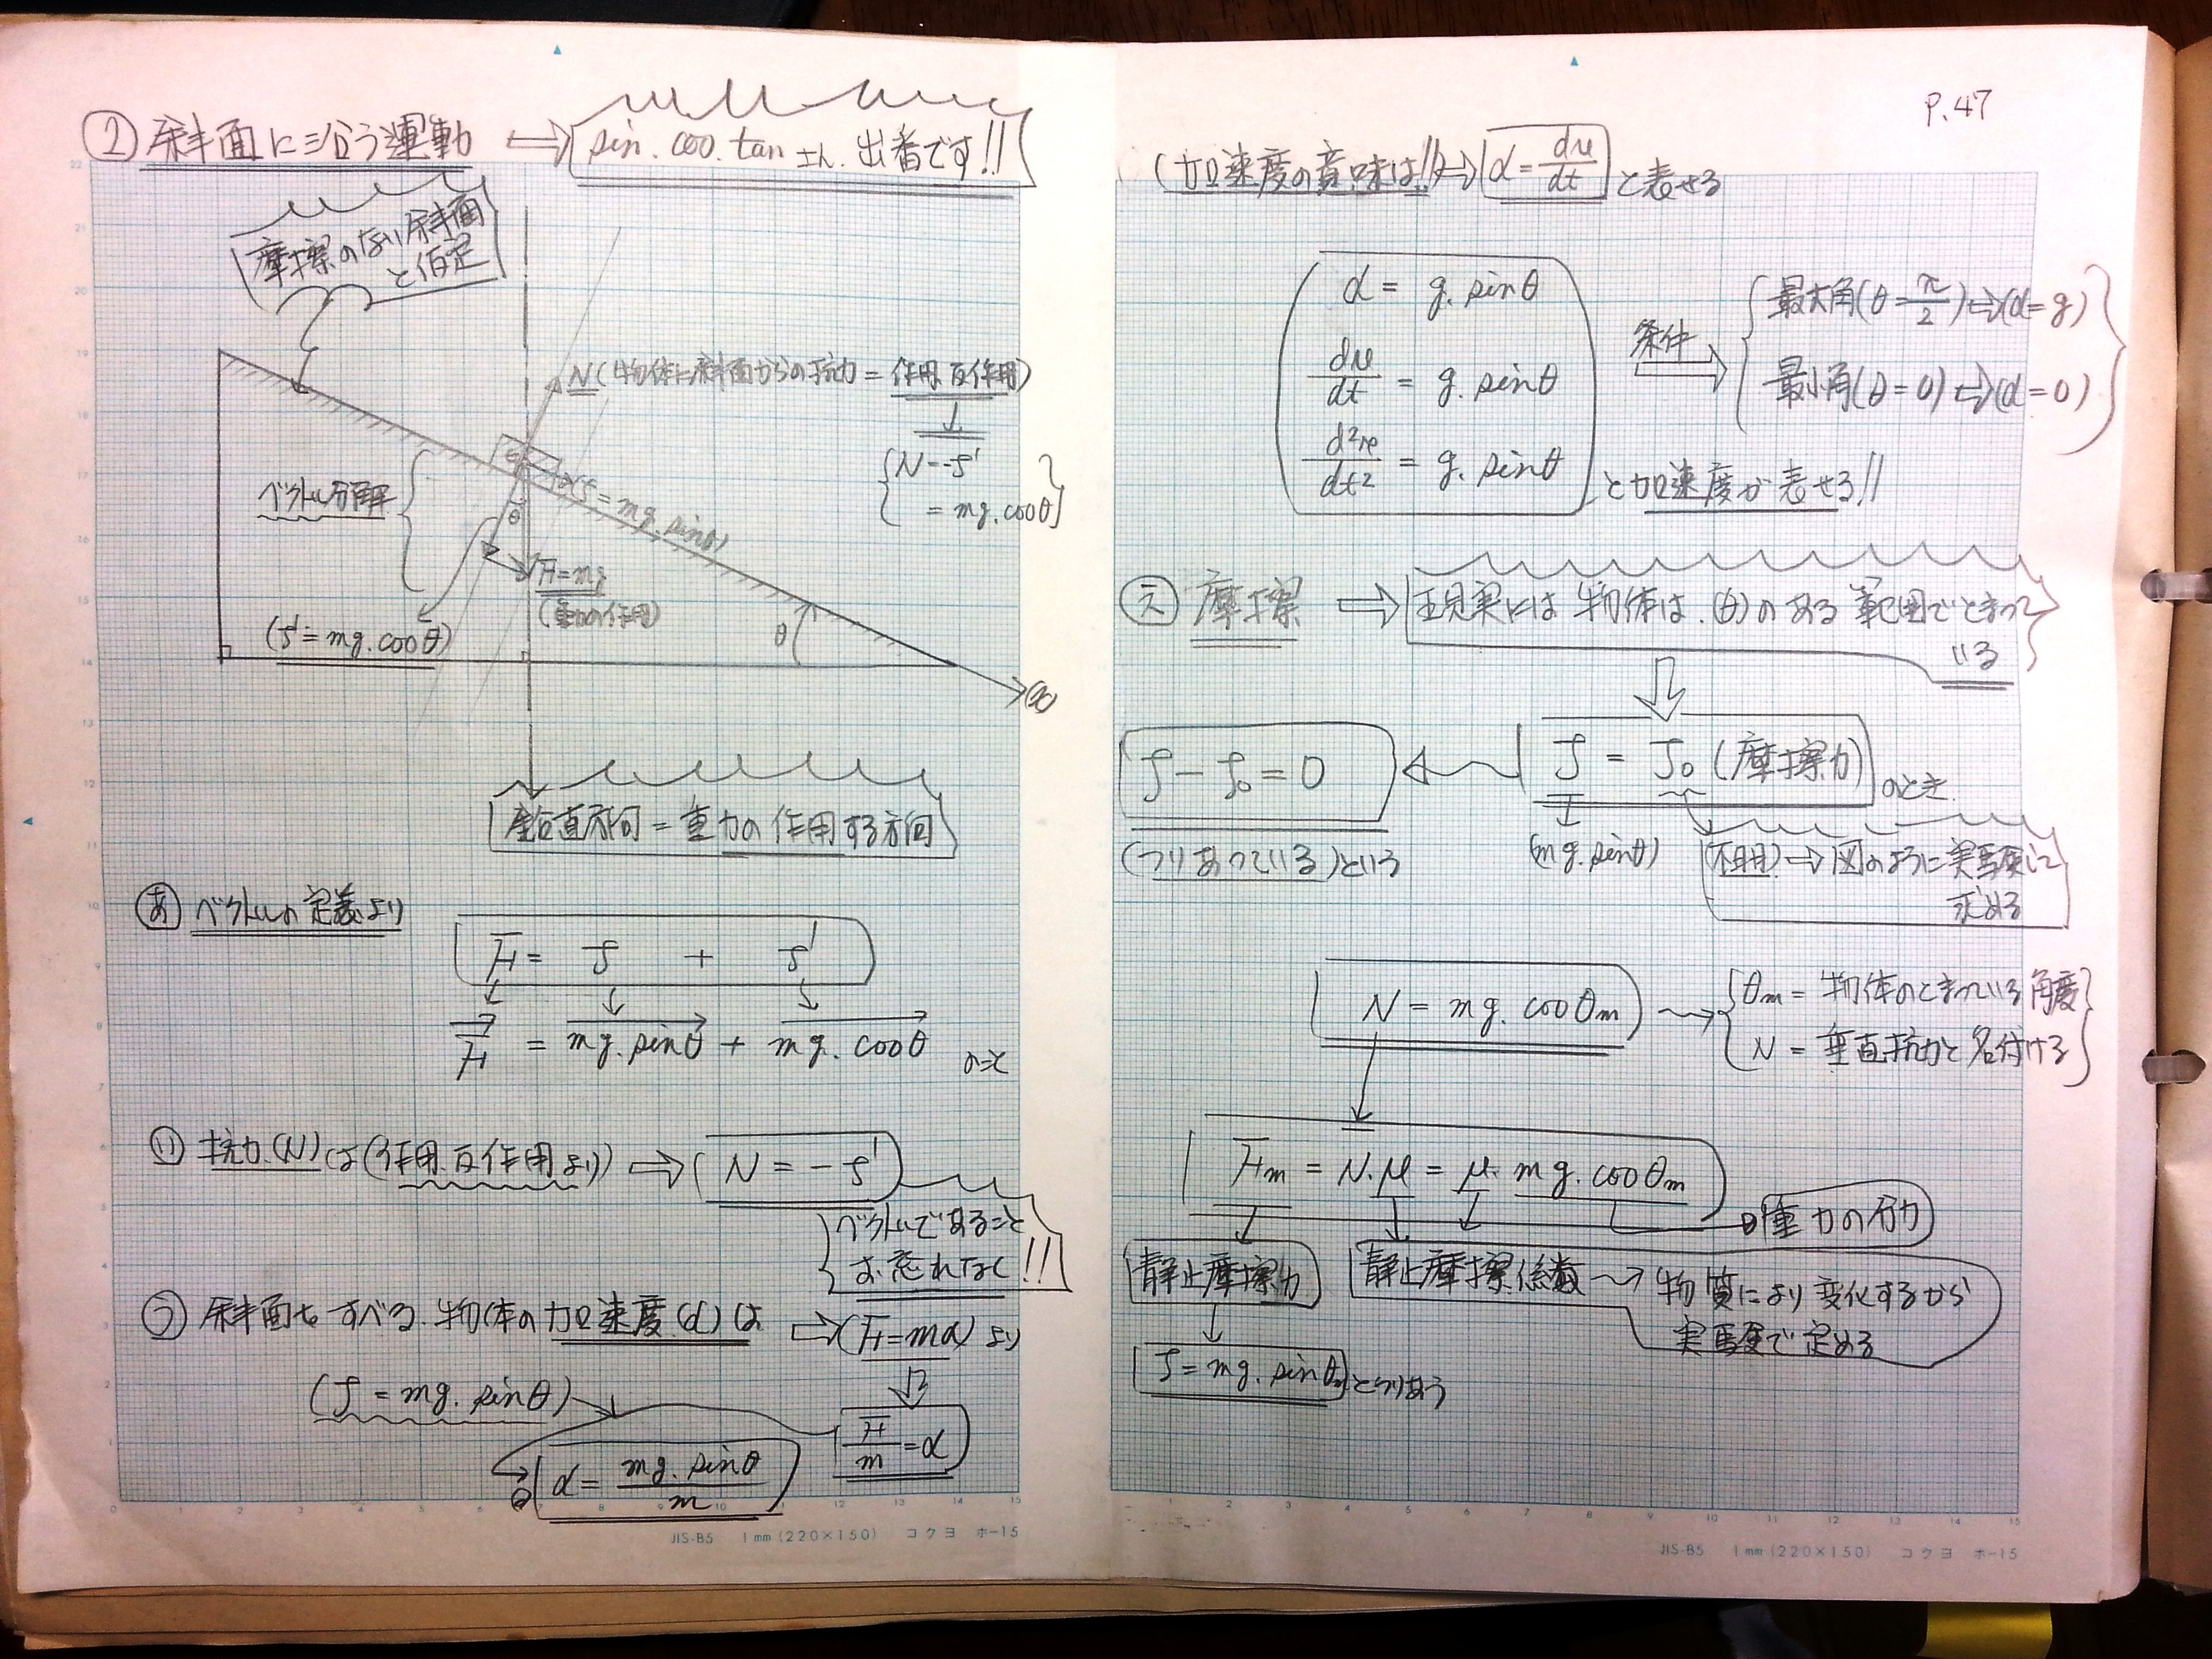 ② 斜面に沿う運動 ⇔ sin. cos. tan さん. 出番です!!
摩擦のない斜面
と仮定
N (物体に斜面からの抗力 = 作用反作用)
N = -f'
= mg.cosθ
ベクトル分解
(f = mg.sinθ)
θ
F = mg
(重力の作用)
(f' = mg.cosθ)
θ
鉛直方向 = 重力の作用する方向
あ ベクトルの定義より
F = f + f'
F = mg.sinθ + mg.cosθ のこと
い 抗力(N)は(作用.反作用より) ⇒ N = -f'
ベクトルであること
お忘れなく!!
う 斜面をすべる.物体の加速度(α)は ⇒ (F=mα)より
(f = mg.sinθ)
F/m = α
α = mg.sinθ/m
JIS-B5 1mm(220×150) コクヨ ホ-15
P.47
(加速度の意味は!!) → α = du/dt と表せる
α = g.sinθ
du/dt = g.sinθ
d²x/dt² = g.sinθ と加速度が表せる!!
条件
最大角(θ = π/2) ⇔ (α = g)
最小角(θ = 0) ⇔ (α = 0)
え 摩擦 ⇒ 現実には物体は.(θ)のある範囲でとまって
いる
f = f₀ (摩擦力) のとき.
f - f₀ = 0
(つりあっている)という
(mg.sinθ)
(不明) → 図のように実験して
求める
N = mg.cosθm
θm = 物体のとまっている角度
N = 垂直抗力と名付ける
Fm = N.μ = μ.mg.cosθm
重力の分力
静止摩擦力
静止摩擦係数 → 物質により変化するから
実験で定める
f = mg.sinθm とつりあう
JIS-B5 1mm(220×150) コクヨ ホ-15